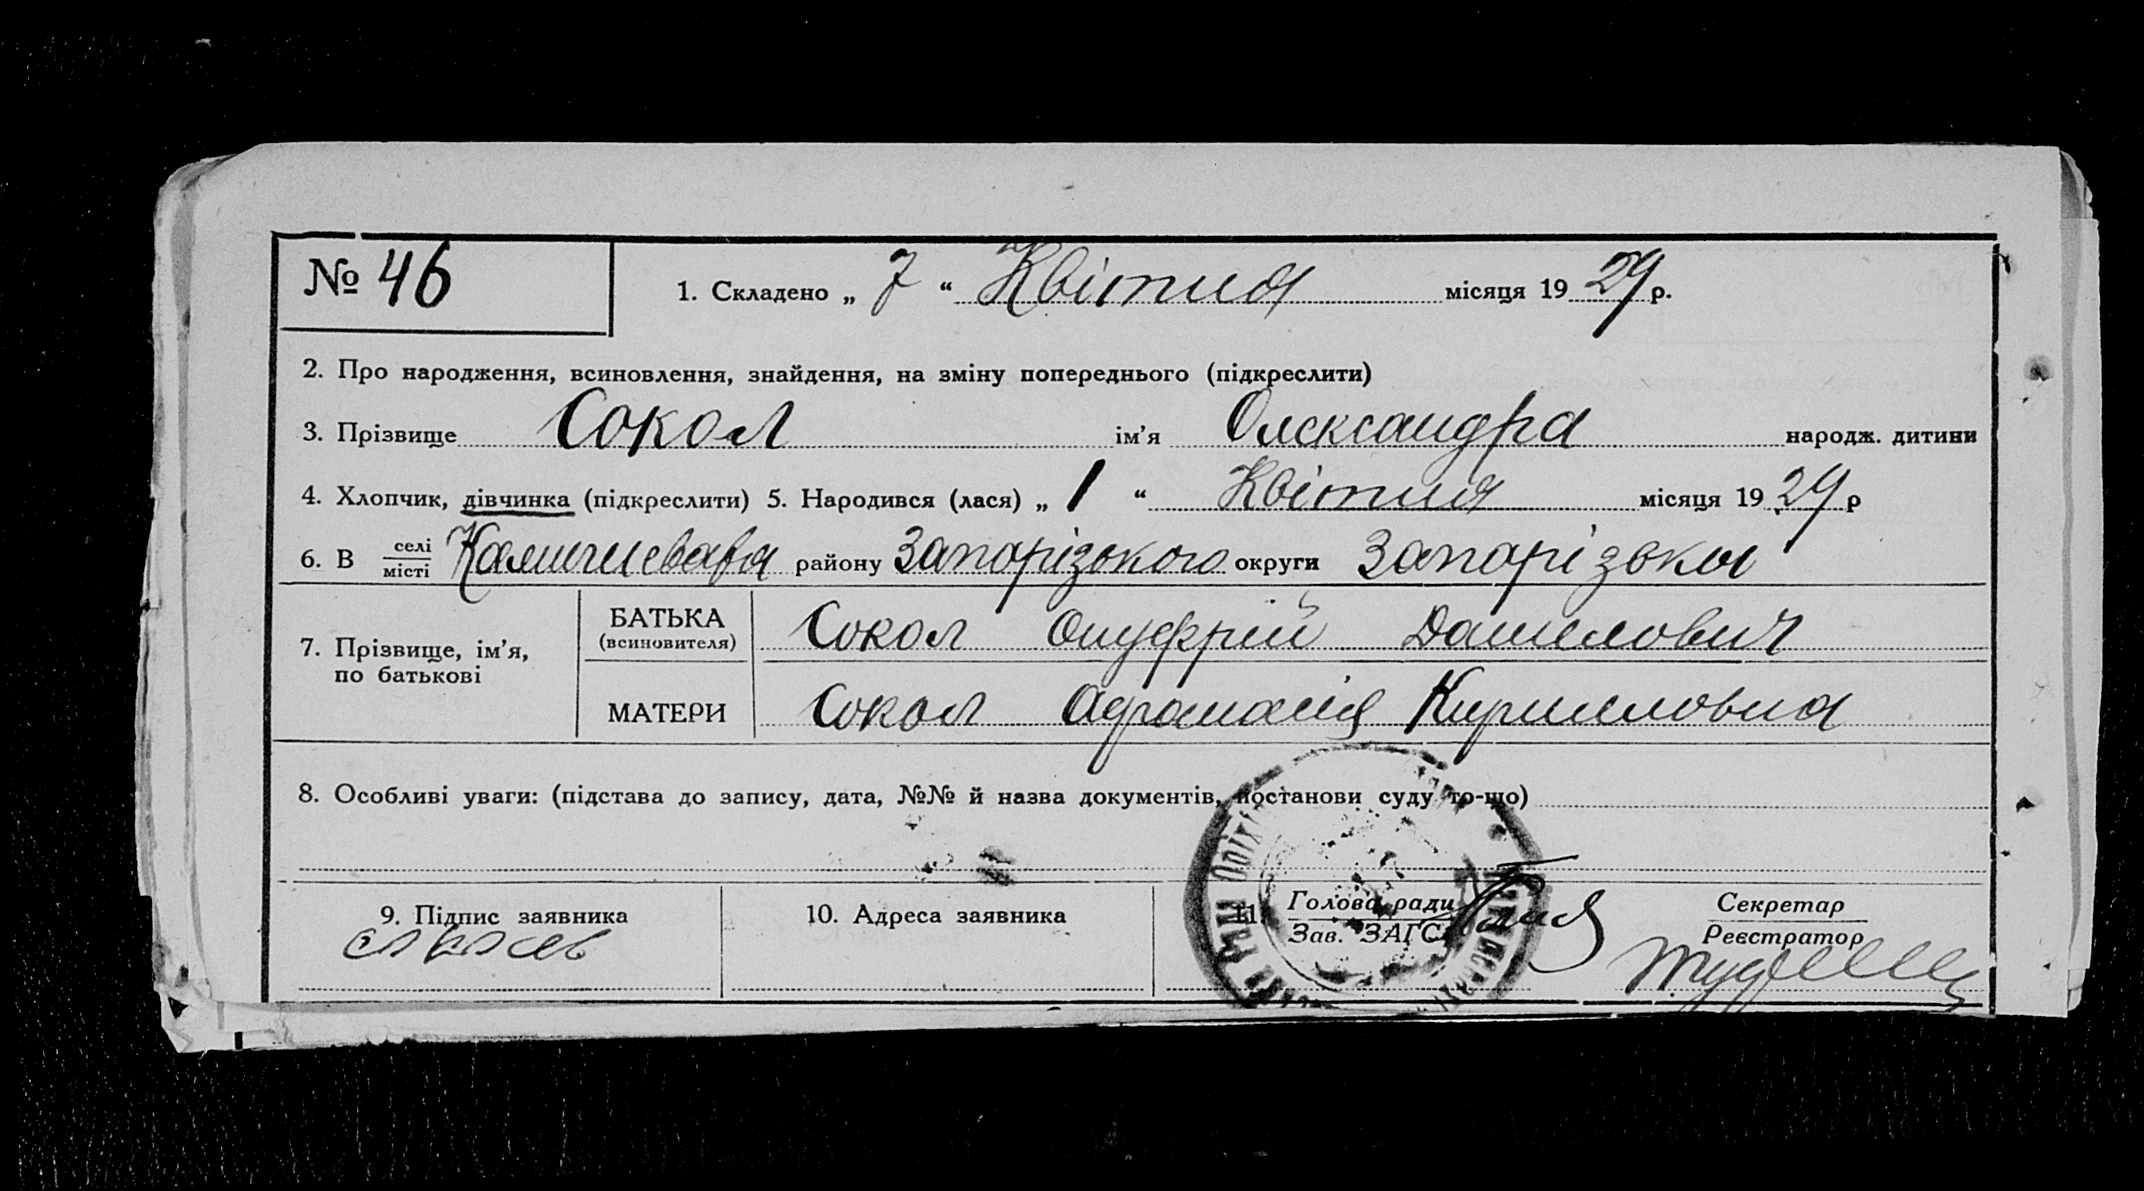 № 46
1. Складено „ 7 “ Квітня місяця 1929 р.
2. Про народження, всиновлення, знайдення, на зміну попереднього (підкреслити)
3. Прізвище Сокол ім’я Олександра народж. дитини
4. Хлопчик, дівчинка (підкреслити) 5. Народився (лася) „ 1 “ Квітня місяця 1929 р
6. В селі місті районy Запорізького округи Запорізька
7. Прізвище, ім’я, по батькові
БАТЬКА (всиновителя) Сокол Онуфрій Данилович
МАТЕРИ Сокол Кирилловна
8. Особливі уваги: (підстава до запису, дата, №№ й назва документів, постанови суду то-що)
9. Підпис заявника
10. Адреса заявника
11. Голова ради Зав. ЗАГС
Секретар Реєстратор